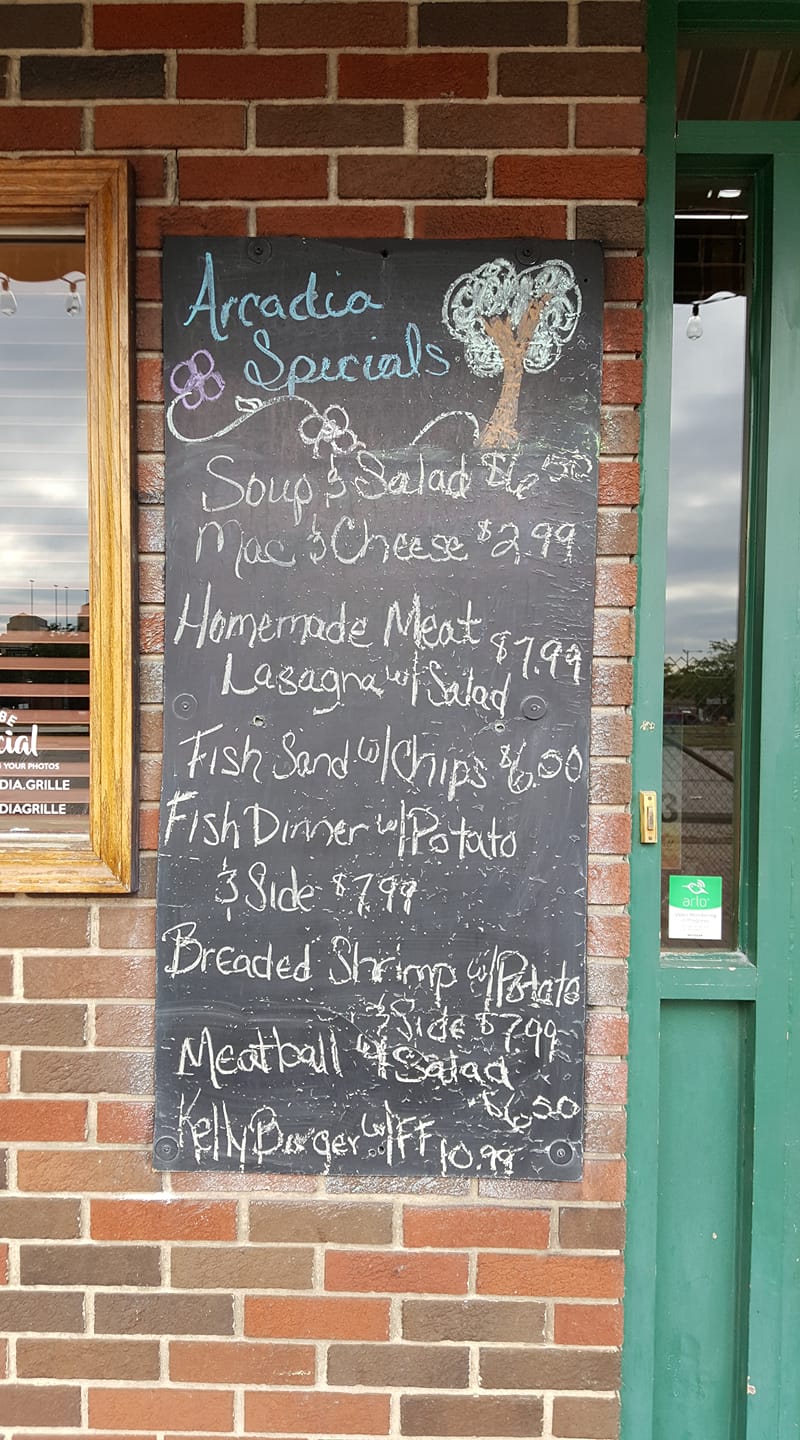 Arcadia
Specials
Soup & Salad $6.50
Mac & Cheese $2.99
Homemade Meat
Lasagna w/ Salad $7.99
Fish Sand w/ Chips $6.00
Fish Dinner w/ Potato
& Side $7.99
Breaded Shrimp w/ Potato
& Side $7.99
Meatball w/ Salad
$6.50
Kelly Burger w/ FF 10.99
BE
cial
YOUR PHOTOS
DIA.GRILLE
DIAGRILLE
3
arlo